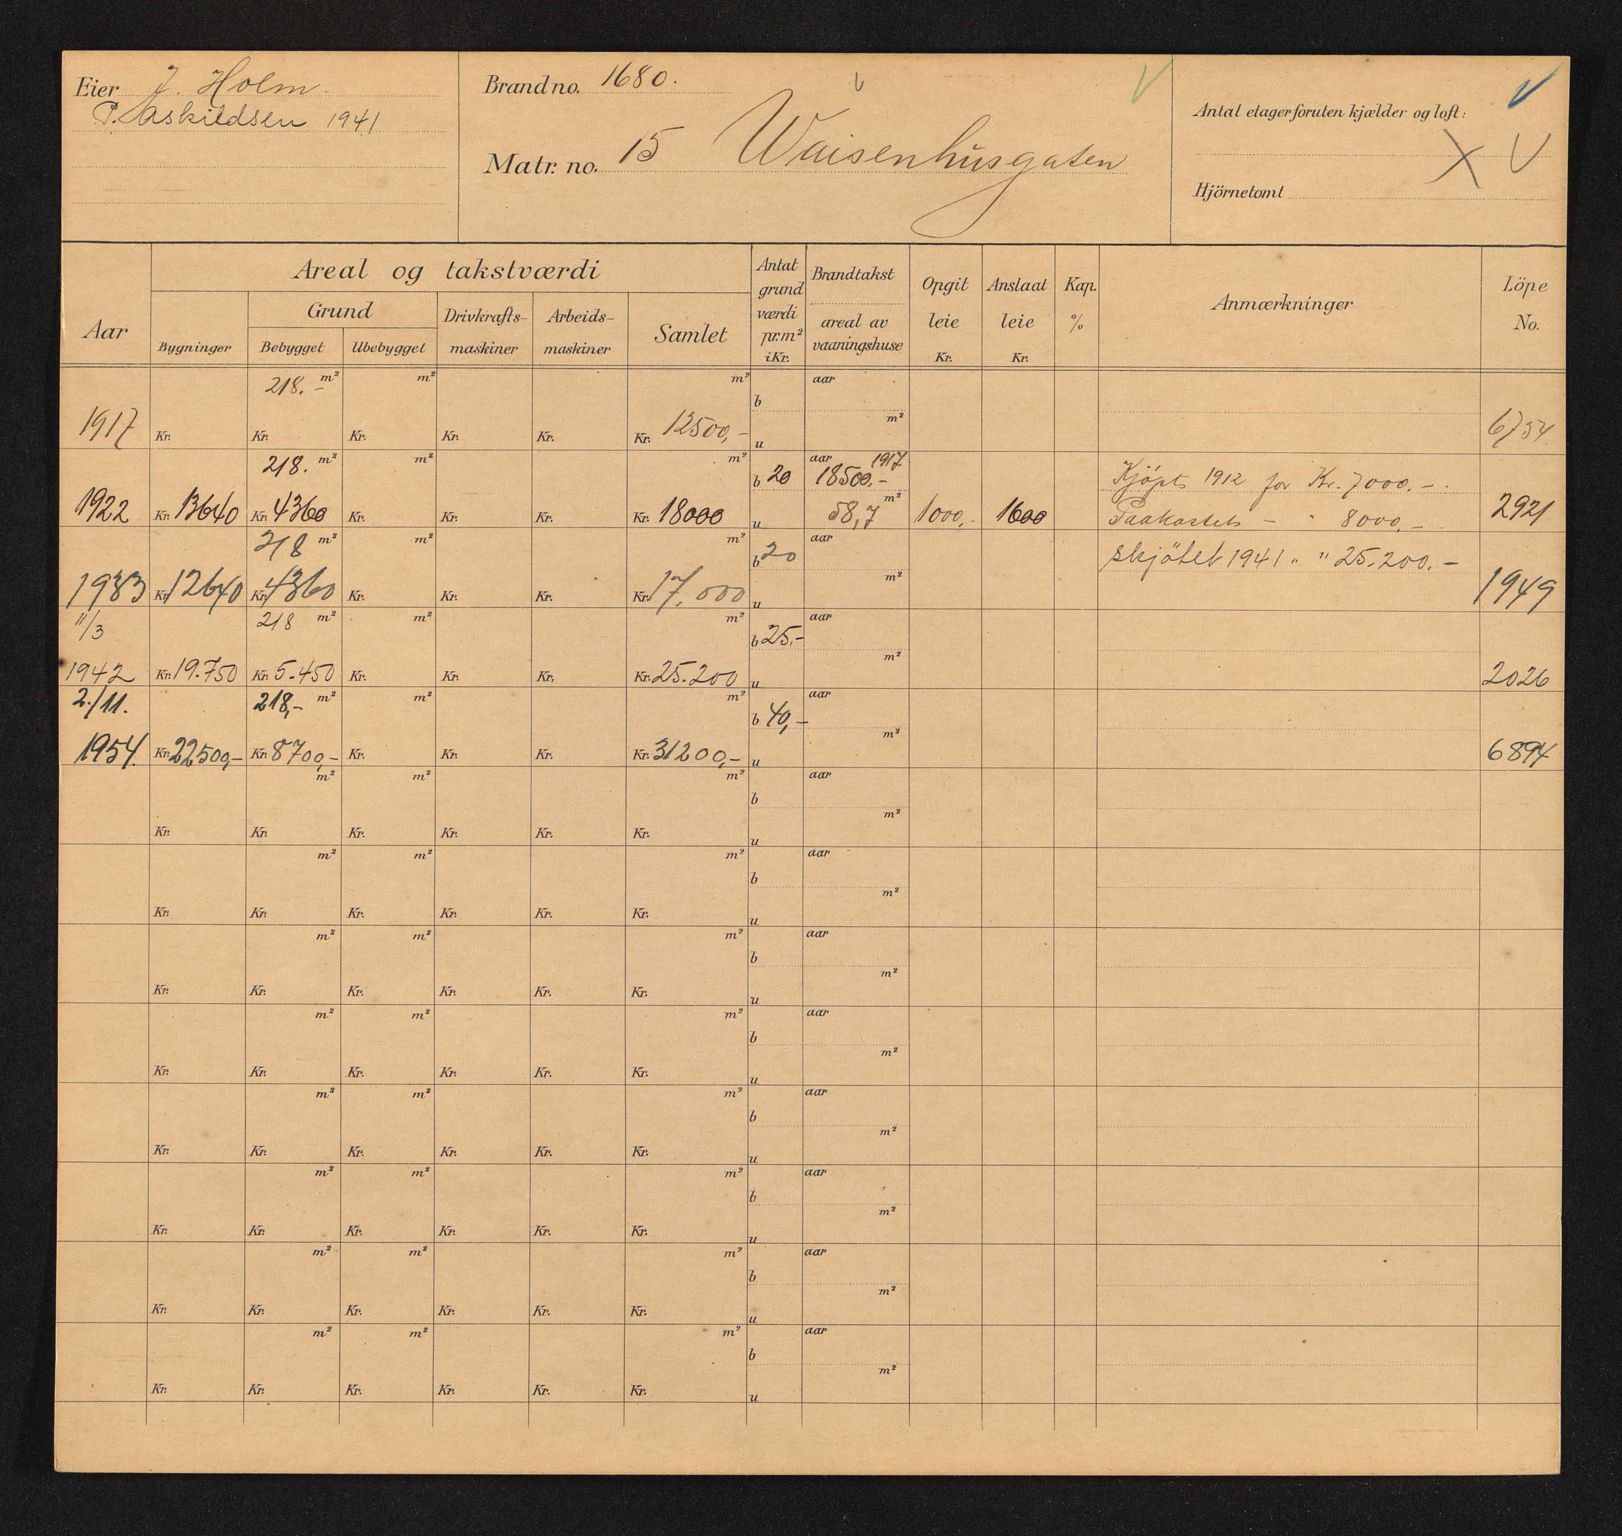 Eier J. Holm.
P. Askildsen 1941
Brand no. 1680.
Matr. no. 15 Waisenhusgaten
Antal etager foruten kjælder og loft:
Hjörnetomt
Aar
Areal og takstværdi
Grund
Bygninger
Bebygget
Ubebygget
Drivkrafts-
maskiner
Arbeids-
maskiner
Samlet
Antat
grund
værdi
pr. m²
i Kr.
Brandtakst
areal av
vaaningshuse
Opgit
leie
Kr.
Anslaat
leie
Kr.
Kap.
%
Anmærkninger
Löpe
No.
218.- m² m² m² aar
b
m²
1917 Kr. Kr. Kr. Kr. Kr. Kr. 12500,- u 6754
218. m² m² m² aar 1917
b 20 18500.- Kjöpt 1912 for Kr. 7000.-
m²
1922 Kr. 13640 Kr. 4360 Kr. Kr. Kr. Kr. 18000 u 58,7 1000,- 1600 Paakostet - " 8000,- 2921
218 m² m² m² aar
b 20 skjötet 1941 " " 25.200.-
m²
1933 Kr. 12640 Kr. 4360 Kr. Kr. Kr. Kr. 17.000 u 1949
11/3 218 m² m² m² aar
b 25.-
m²
1942 Kr. 19.750 Kr. 5.450 Kr. Kr. Kr. Kr. 25.200 u 2026
2./11. 218,- m² m² m² aar
b 40,-
m²
1954. Kr. 22500,- Kr. 8700,- Kr. Kr. Kr. Kr. 31200,- u 6894
m² m² m² aar
b
m²
Kr. Kr. Kr. Kr. Kr. Kr. u
m² m² m² aar
b
m²
Kr. Kr. Kr. Kr. Kr. Kr. u
m² m² m² aar
b
m²
Kr. Kr. Kr. Kr. Kr. Kr. u
m² m² m² aar
b
m²
Kr. Kr. Kr. Kr. Kr. Kr. u
m² m² m² aar
b
m²
Kr. Kr. Kr. Kr. Kr. Kr. u
m² m² m² aar
b
m²
Kr. Kr. Kr. Kr. Kr. Kr. u
m² m² m² aar
b
m²
Kr. Kr. Kr. Kr. Kr. Kr. u
m² m² m² aar
b
m²
Kr. Kr. Kr. Kr. Kr. Kr. u